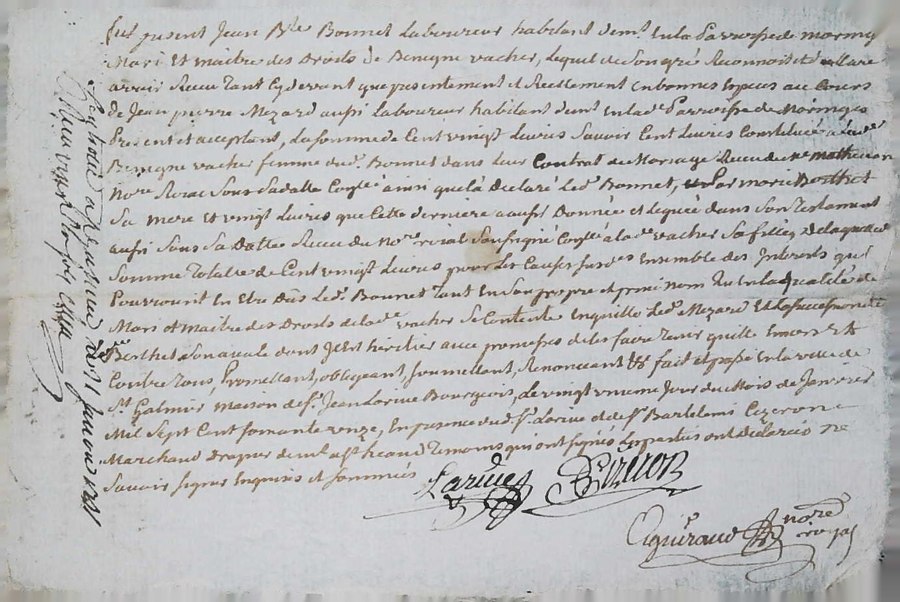 fut present Jean Bte Bonnet Laboureur habitant demt en la Parroisse de
Mari et maitre des Droits de Benigne vacher, lequel de son gré Reconnoit et
avoir Receu tant cy devant que presentement et Reellement en bonnes Especes au Cours
de Jean pierre Mezard aussi Laboureur habitant demt en lad. Parroisse de
Present et acceptant, La somme de Cent vingt Livres Savoir Cent Livres Constituée a lad.
Benigne vacher femme dud. Bonnet dans leur Contrat de Mariage Receu de Me
Nore Royal Sous Sa datte ainsi que l'a declaré Led. Bonnet, Par marie Berthet
Sa mere et vingt Livres que Cette derniere a aussi Donnée et Leguée dans Son Testament
aussi Sous Sa Datte Receu du Nore royal Soussigné a lad. vacher Sa fille, De laquelle
Somme Totalle de Cent vingt Livres pour Les Causes susd. Ensemble des Interets qui
Pourroient En Etre Dûs Led. Bonnet Tant En Son propre et privé nom qu'en la qualité de
Mari et Maitre des Droits de lad. vacher Se Contente Enquitte Led. Mezard Et
Berthet Son ayeule dont Il est héritier avec promesses de les faire tenir quitte Envers et
Contre Tous, Promettant, obligeant, Soumettant, Renonçant &c fait et passé En la ville de
St. Galmier maison de Sr. Jean Larive Bourgeois, Le vingt unieme Jour du Mois de Janvier
Mil Sept Cent Soixante onze, En presence dud. Sr. Larive et de Sr. Bartelemi
Marchand Drapier demt aud. St. heand Temoins qui ont signés Les parties ont Declarées ne
Savoir Signer Enquises et Sommées
Larive
Aguiraud nore royal
a St. galmier le 31 Janvier 1771